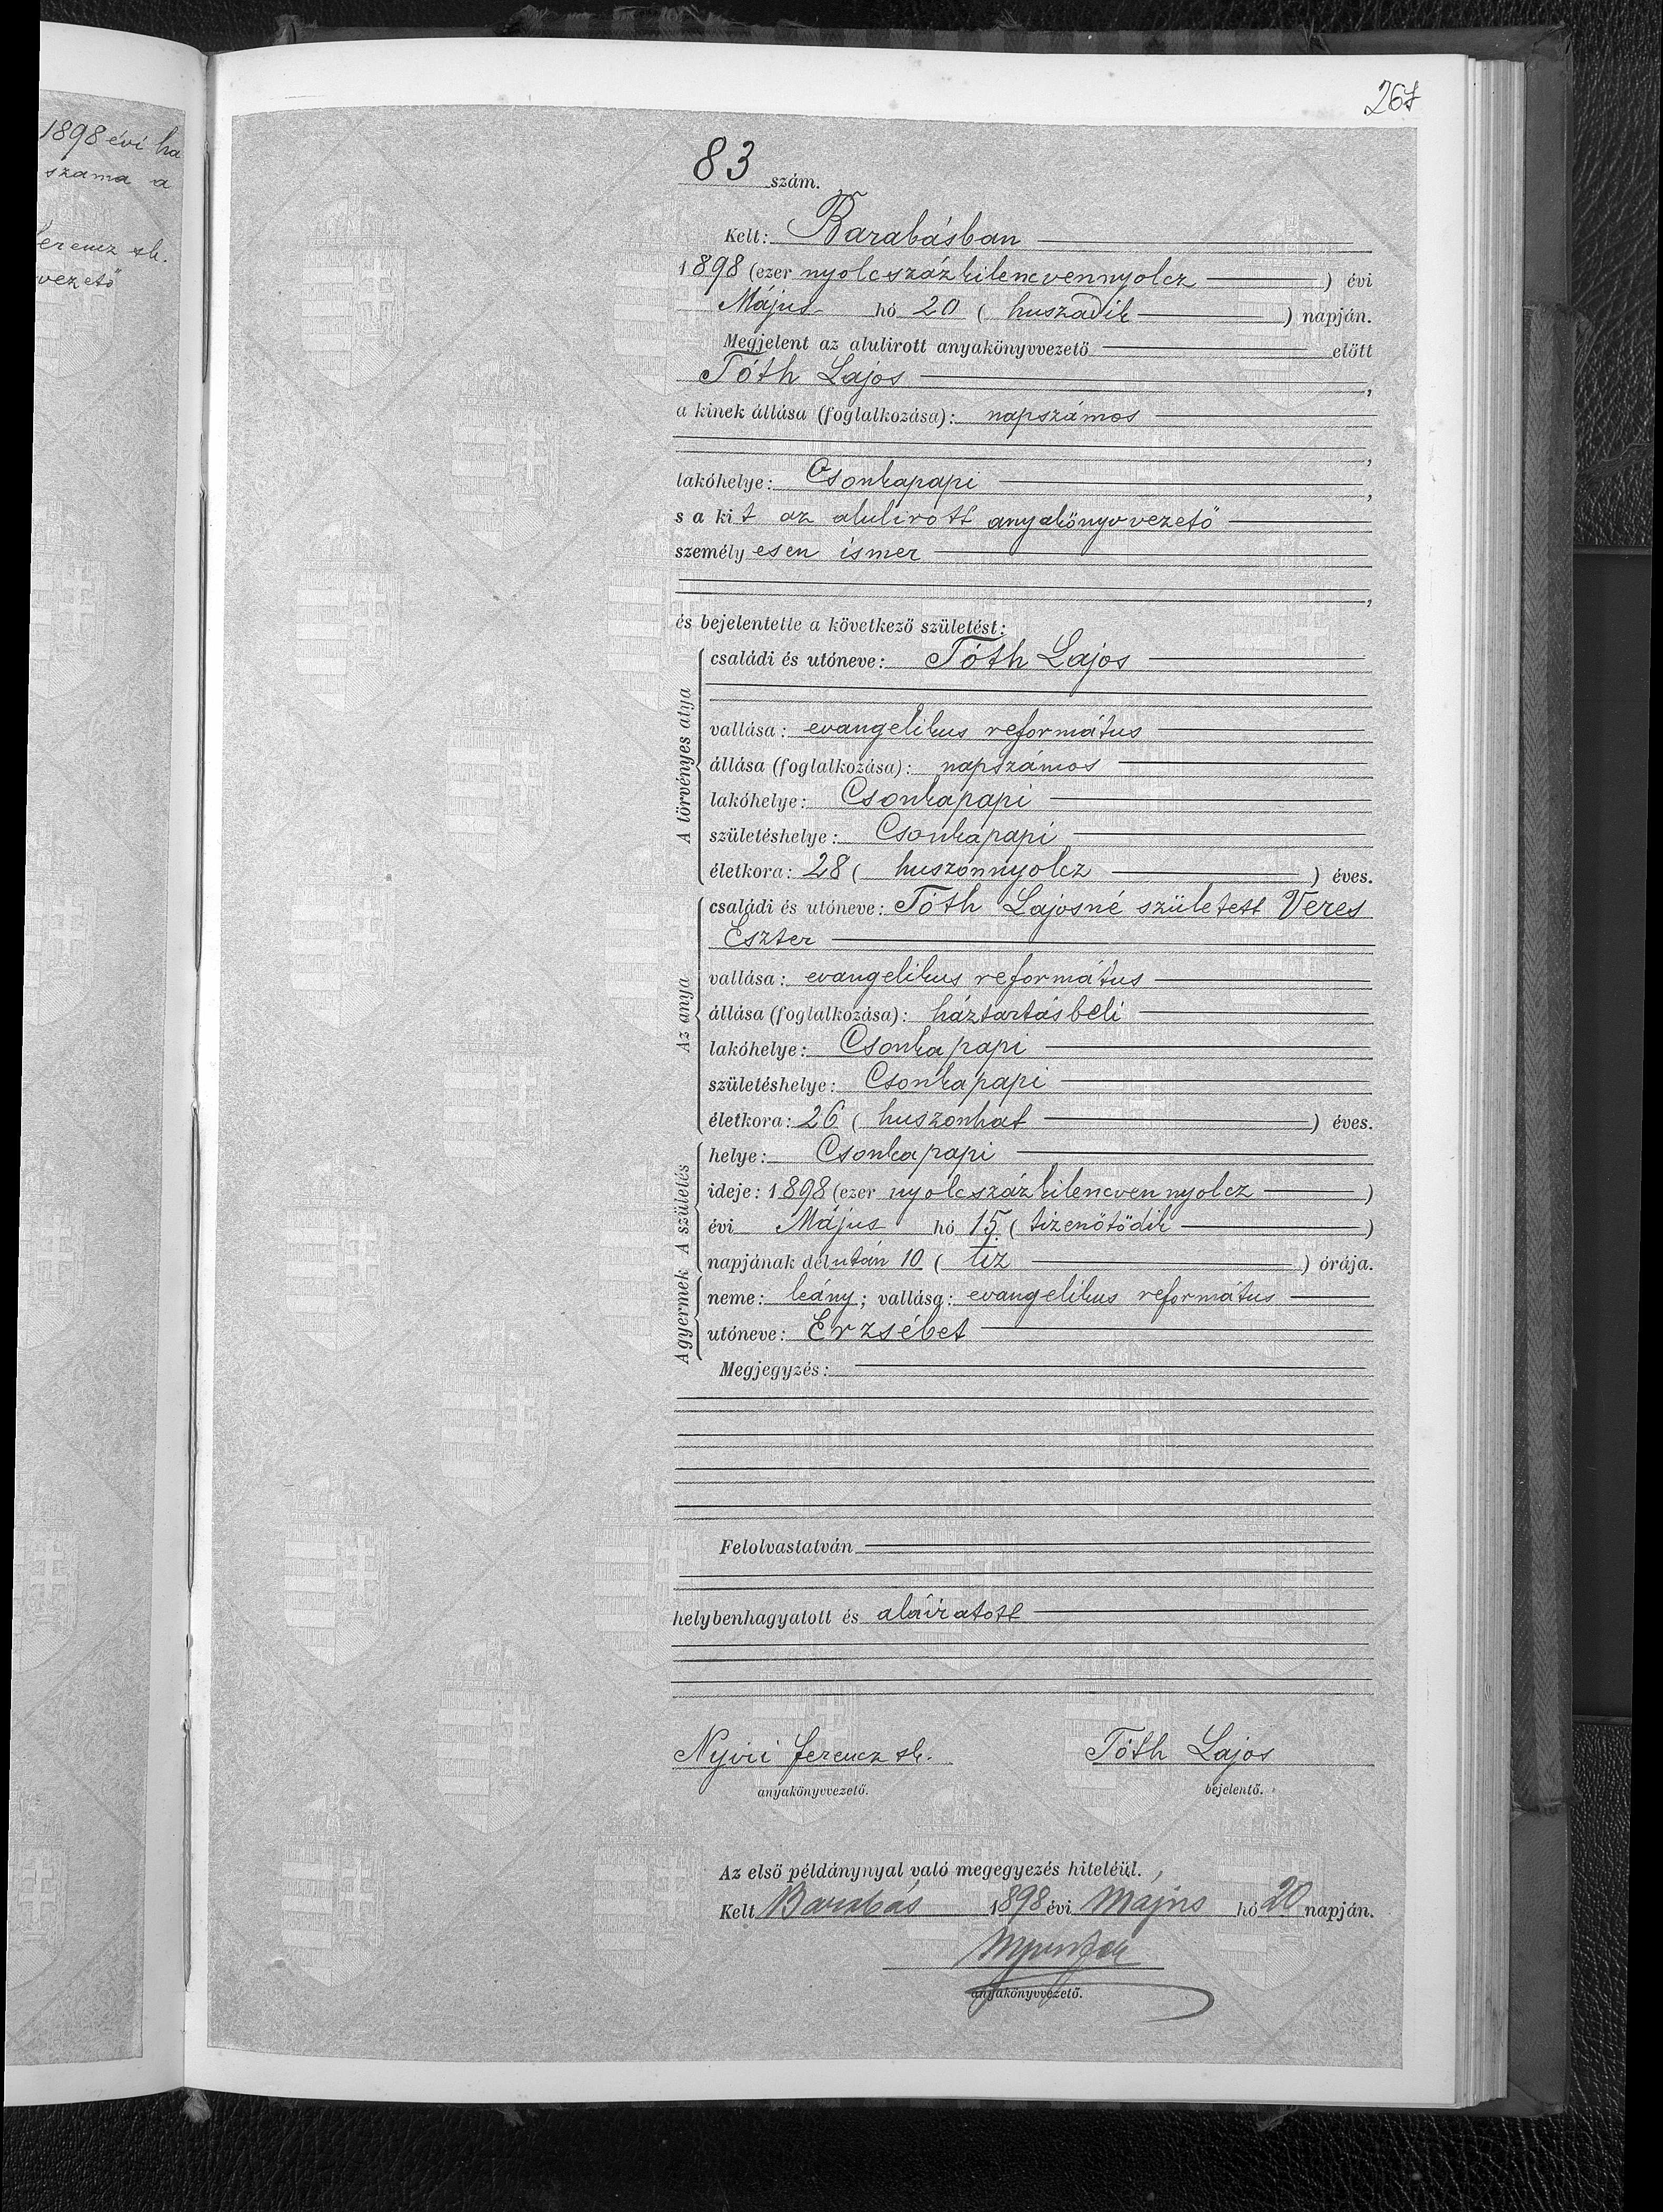 1898 évi ha
száma a
ferencz sk.
vezető
267
83 szám.
Kelt: Barabásban
1898 (ezer nyolcszázkilencvennyolcz) évi
Május hó 20 (huszadik) napján.
Megjelent az alulirott anyakönyvvezető előtt
Tóth Lajos,
a kinek állása (foglalkozása): napszámos
,
lakóhelye: Csonkapapi,
s a kit az alulirott anyakönyvvezető
személyesen ismer
,
és bejelentette a következő születést:
A törvényes atya
családi és utóneve: Tóth Lajos
vallása: evangelikus református
állása (foglalkozása): napszámos
lakóhelye: Csonkapapi
születéshelye: Csonkapapi
életkora: 28 (huszonnyolcz) éves.
Az anya
családi és utóneve: Tóth Lajosné született Veres
Eszter
vallása: evangelikus református
állása (foglalkozása): háztartásbeli
lakóhelye: Csonkapapi
születéshelye: Csonkapapi
életkora: 26 (huszonhat) éves.
A születés
helye: Csonkapapi
ideje: 1898 (ezer nyolcszázkilencvennyolcz)
évi Május hó 15. (tizenötödik)
napjának délután 10 (tíz) órája.
A gyermek
neme: leány; vallása: evangelikus református
utóneve: Erzsébet
Megjegyzés:
Felolvastatván
helybenhagyatott és aláiratott
Nyiri ferencz sk. Tóth Lajos
anyakönyvvezető. bejelentő.
Az első példánynyal való megegyezés hiteléül.
Kelt Barabás 1898 évi Május hó 20 napján.
anyakönyvvezető.